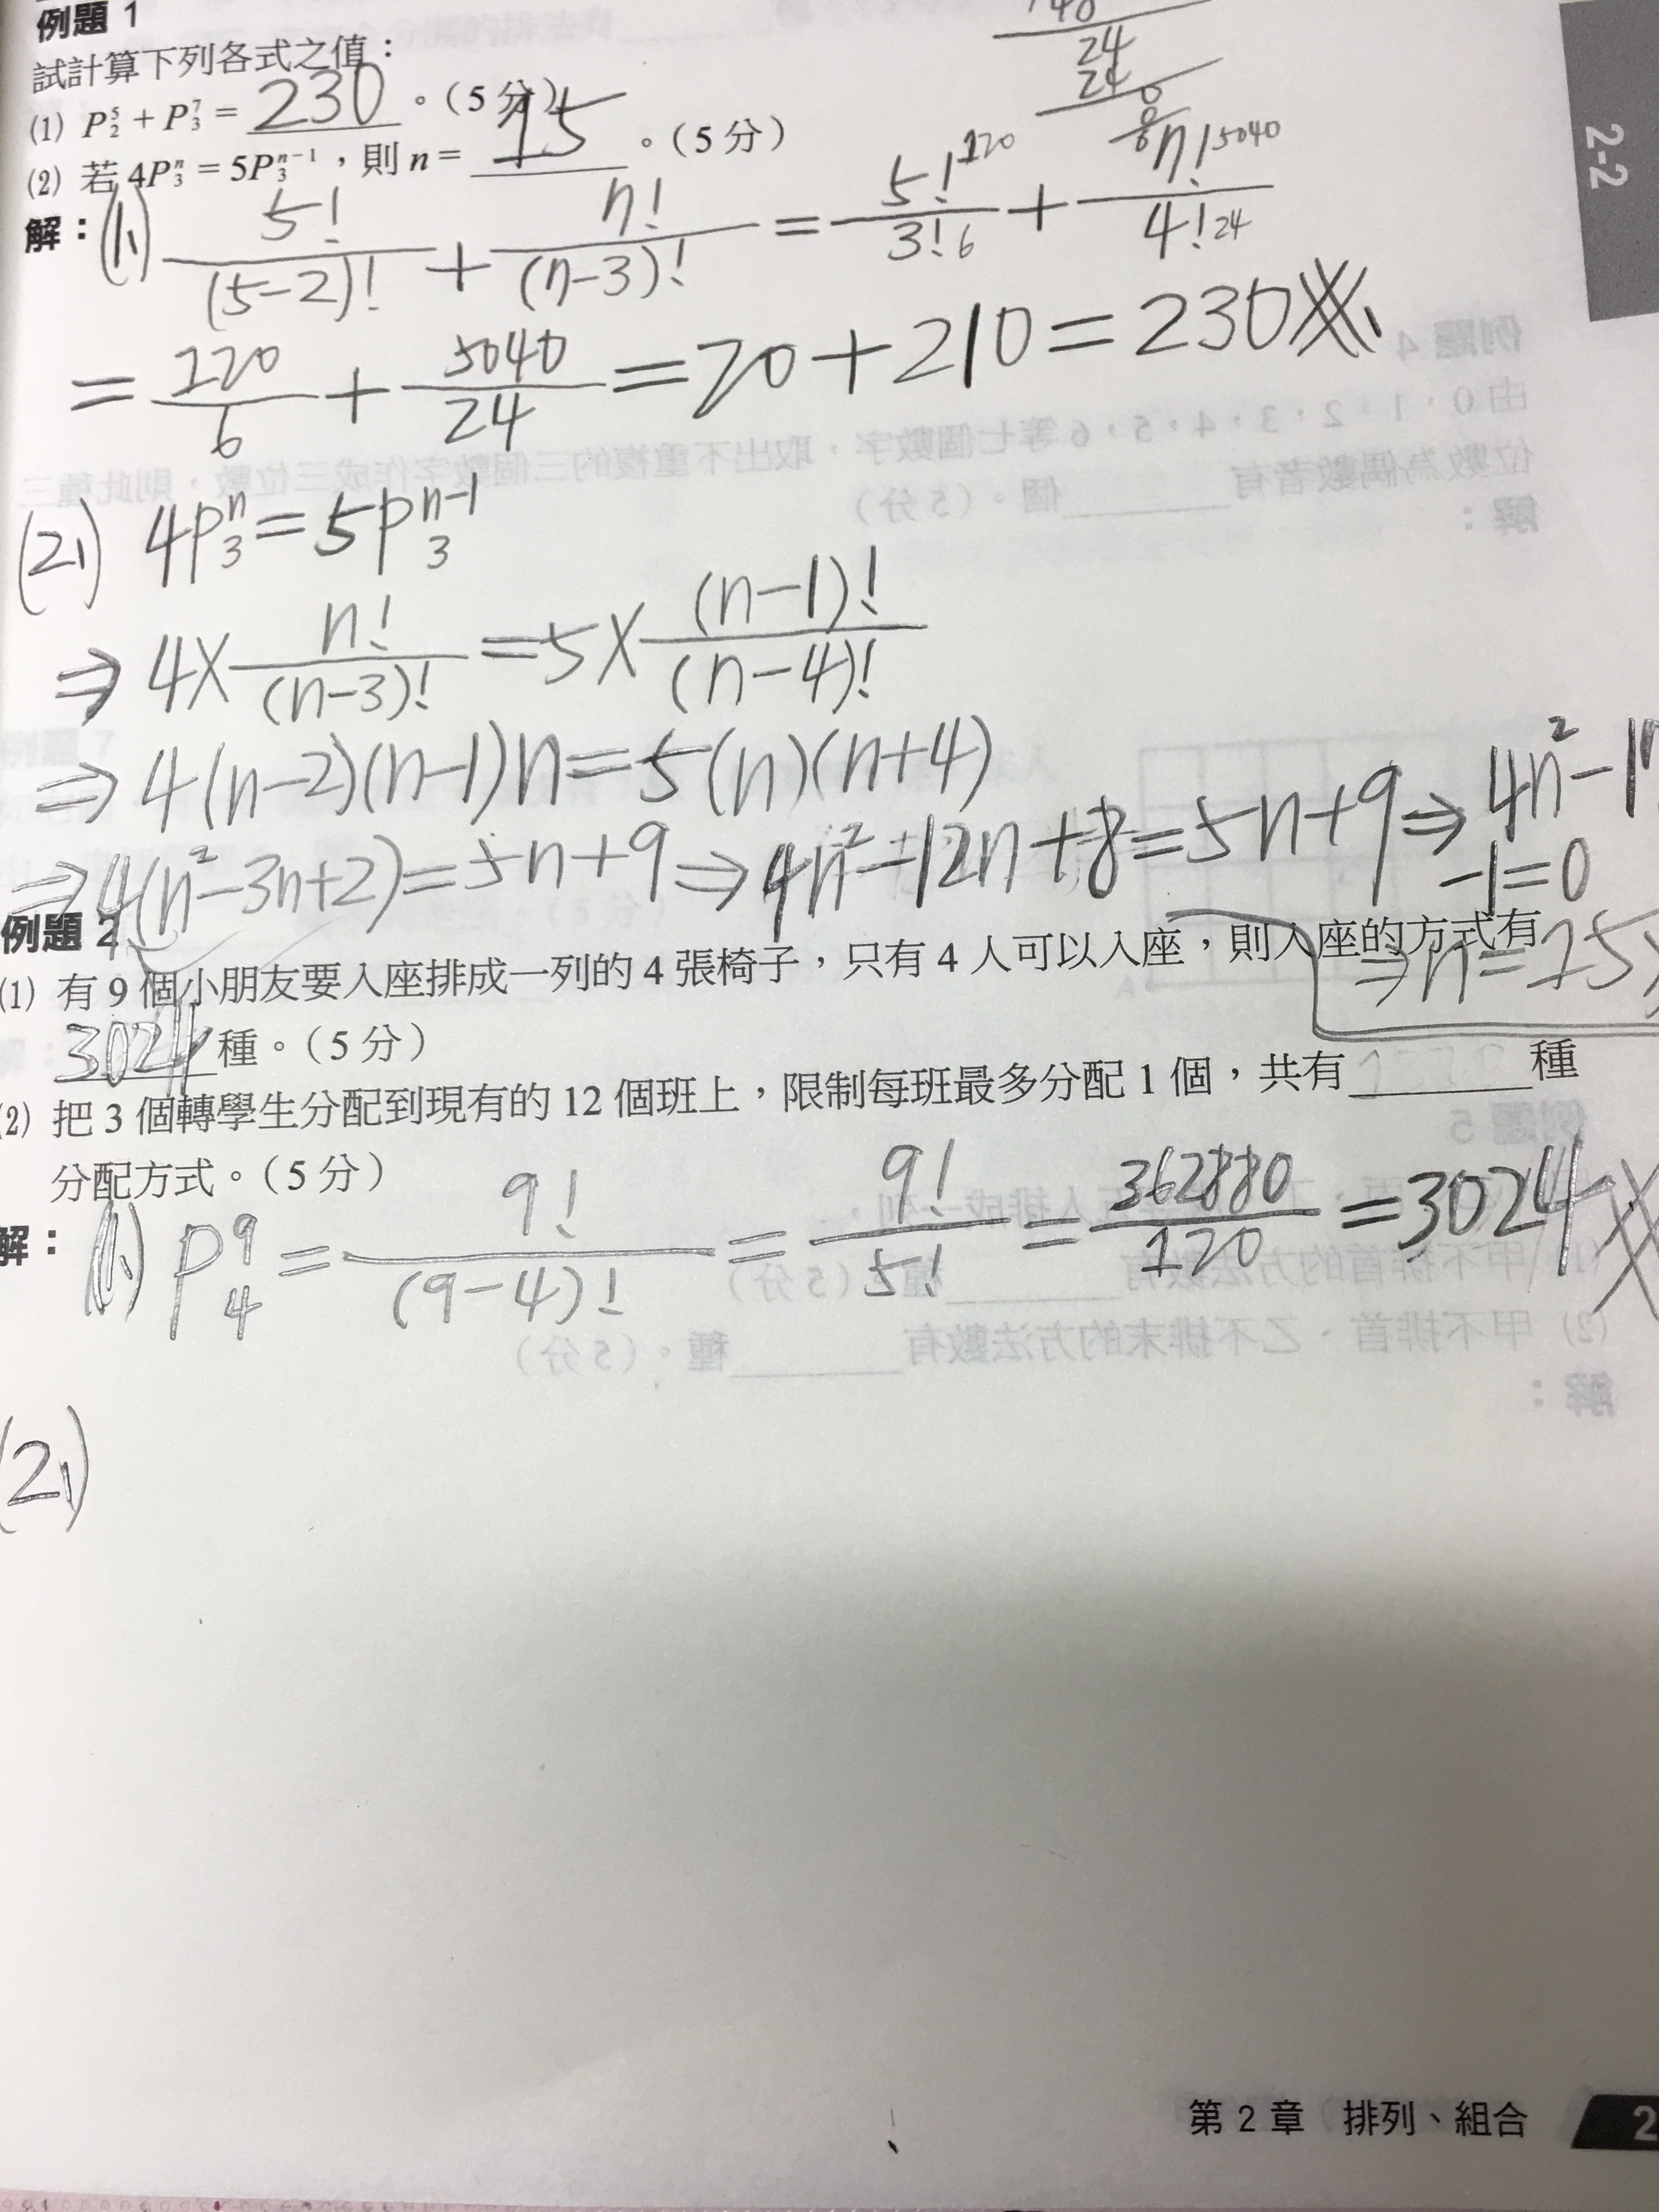 例題 1
試計算下列各式之值：
(1) P⁵₂ + P⁷₃ = 230 。（5 分）
(2) 若 4Pⁿ₃ = 5Pⁿ⁻¹₃，則 n = 15 。（5 分）
40
24
24
0
解：(1) 5!/(5-2)! + n!/(n-3)! = 5!/3! + n!/4!
120 5040
6 24
= 120/6 + 5040/24 = 20 + 210 = 230
(2) 4Pⁿ₃ = 5Pⁿ⁻¹₃
⇒ 4 × n!/(n-3)! = 5 × (n-1)!/(n-4)!
⇒ 4(n-2)(n-1)n = 5(n)(n+4)
⇒ 4(n²-3n+2) = 5n+9 ⇒ 4n²-12n+8 = 5n+9 ⇒ 4n²-17
-1=0
⇒ n = 15
例題 2
(1) 有 9 個小朋友要入座排成一列的 4 張椅子，只有 4 人可以入座，則入座的方式有
3024 種。（5 分）
(2) 把 3 個轉學生分配到現有的 12 個班上，限制每班最多分配 1 個，共有 種
分配方式。（5 分）
解：(1) P⁹₄ = 9!/(9-4)! = 9!/5! = 362880/120 = 3024
(2)
2-2
第 2 章 排列、組合
2